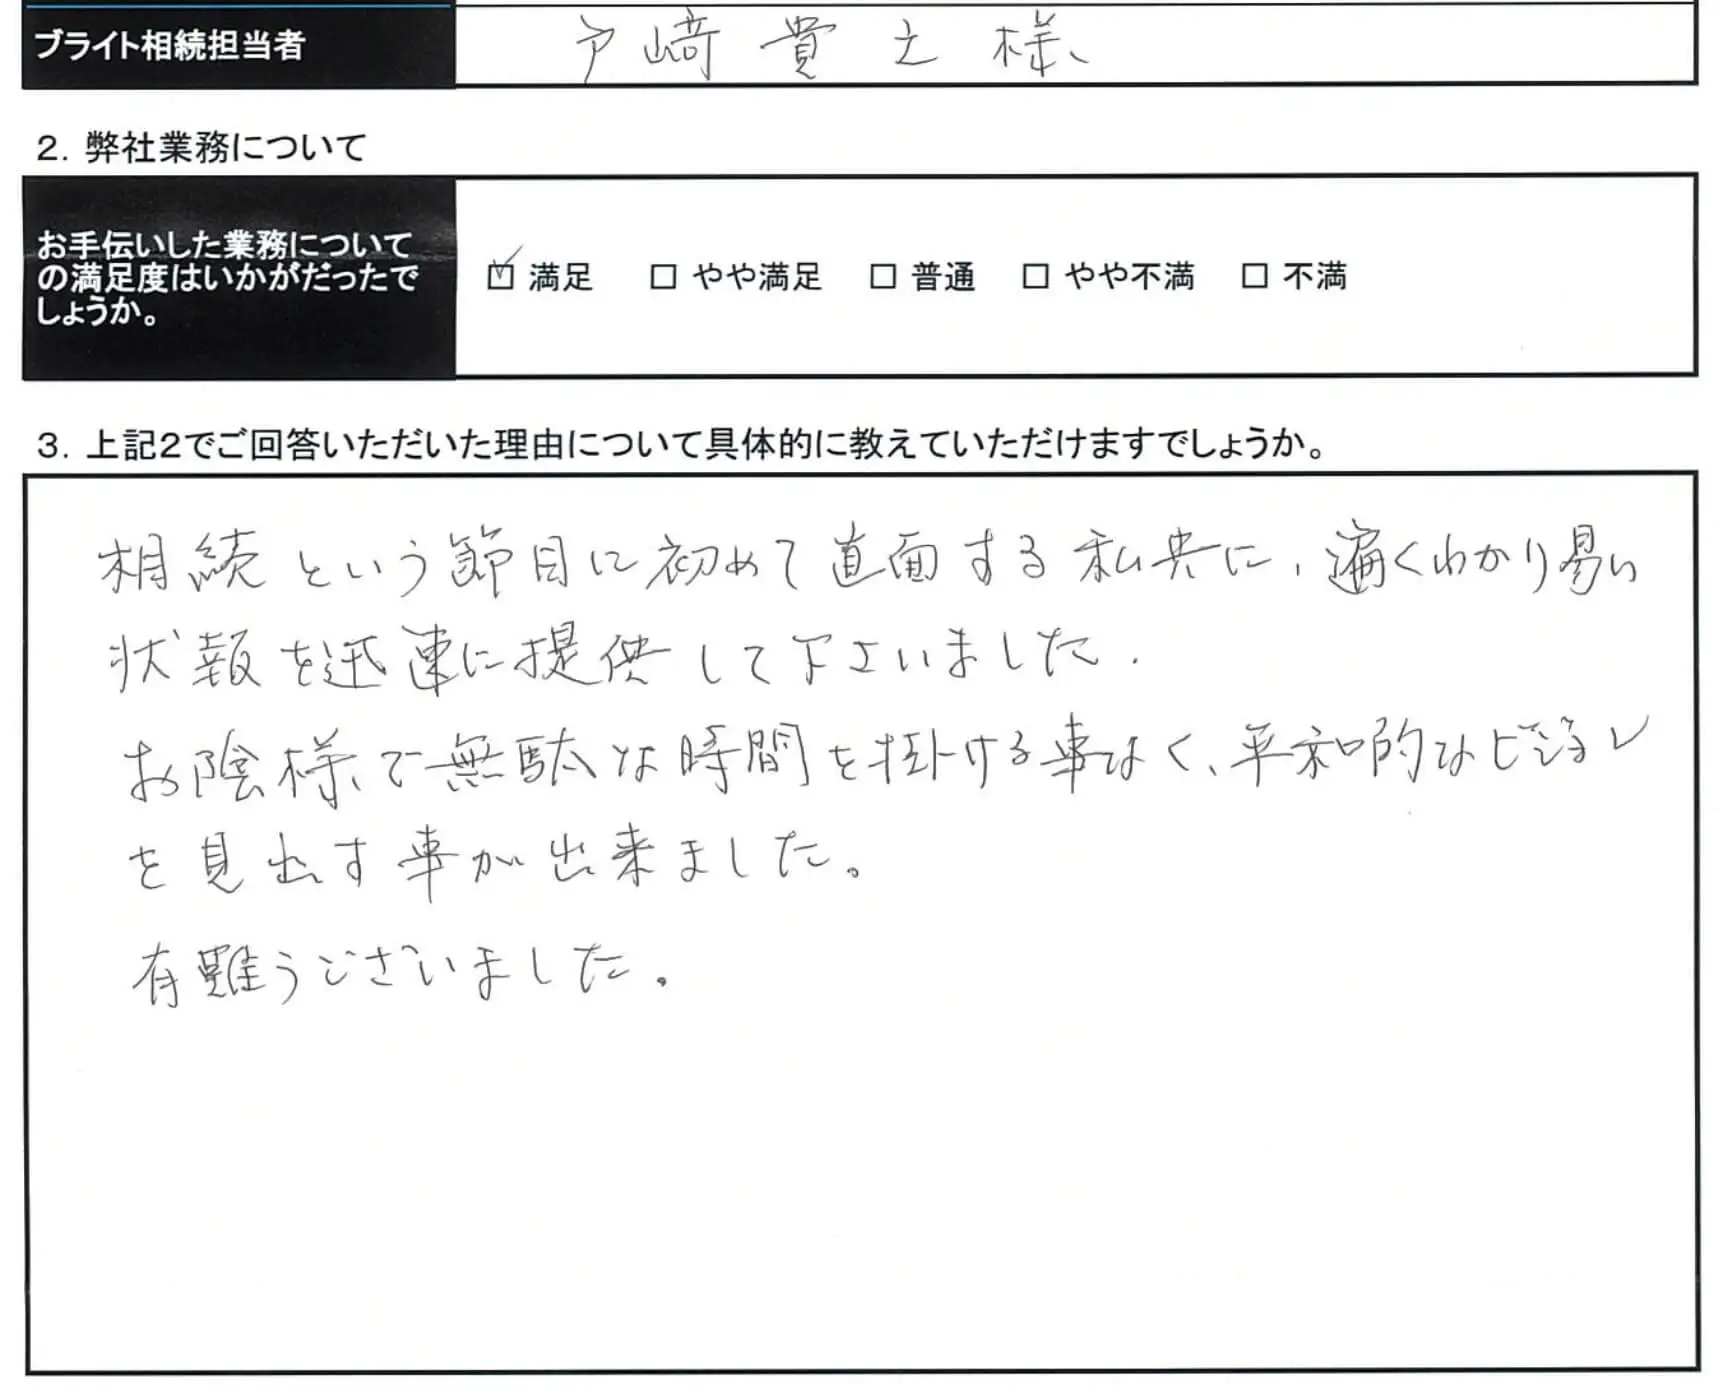 ブライト相続担当者
戸﨑 貴之 様
2. 弊社業務について
お手伝いした業務について
の満足度はいかがだったで
しょうか。
☑ 満足 □ やや満足 □ 普通 □ やや不満 □ 不満
3. 上記2でご回答いただいた理由について具体的に教えていただけますでしょうか。
相続という節目に初めて直面する私共に、遍くわかり易い
状報を迅速に提供して下さいました.
お陰様で無駄な時間を掛ける事なく、平和的な
を見出す事が出来ました。
有難うございました.